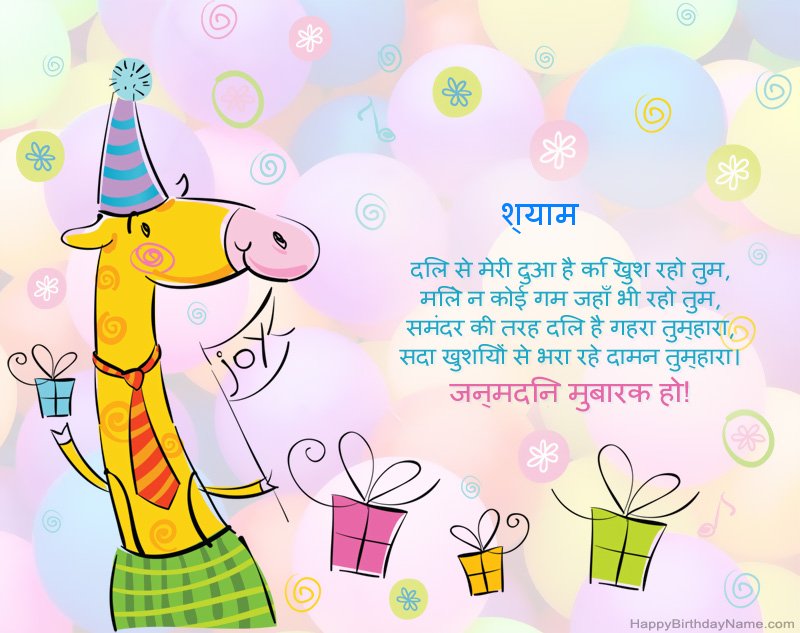 श्याम
दलि से मेरी दुआ है क िखुश रहो तुम,
मलिे न कोई गम जहाँ भी रहो तुम,
समंदर की तरह दलि है गहरा तुम्हारा,
सदा खुशयिों से भरा रहे दामन तुम्हारा।
जन्मदनि मुबारक हो!
joy
HappyBirthdayName.com